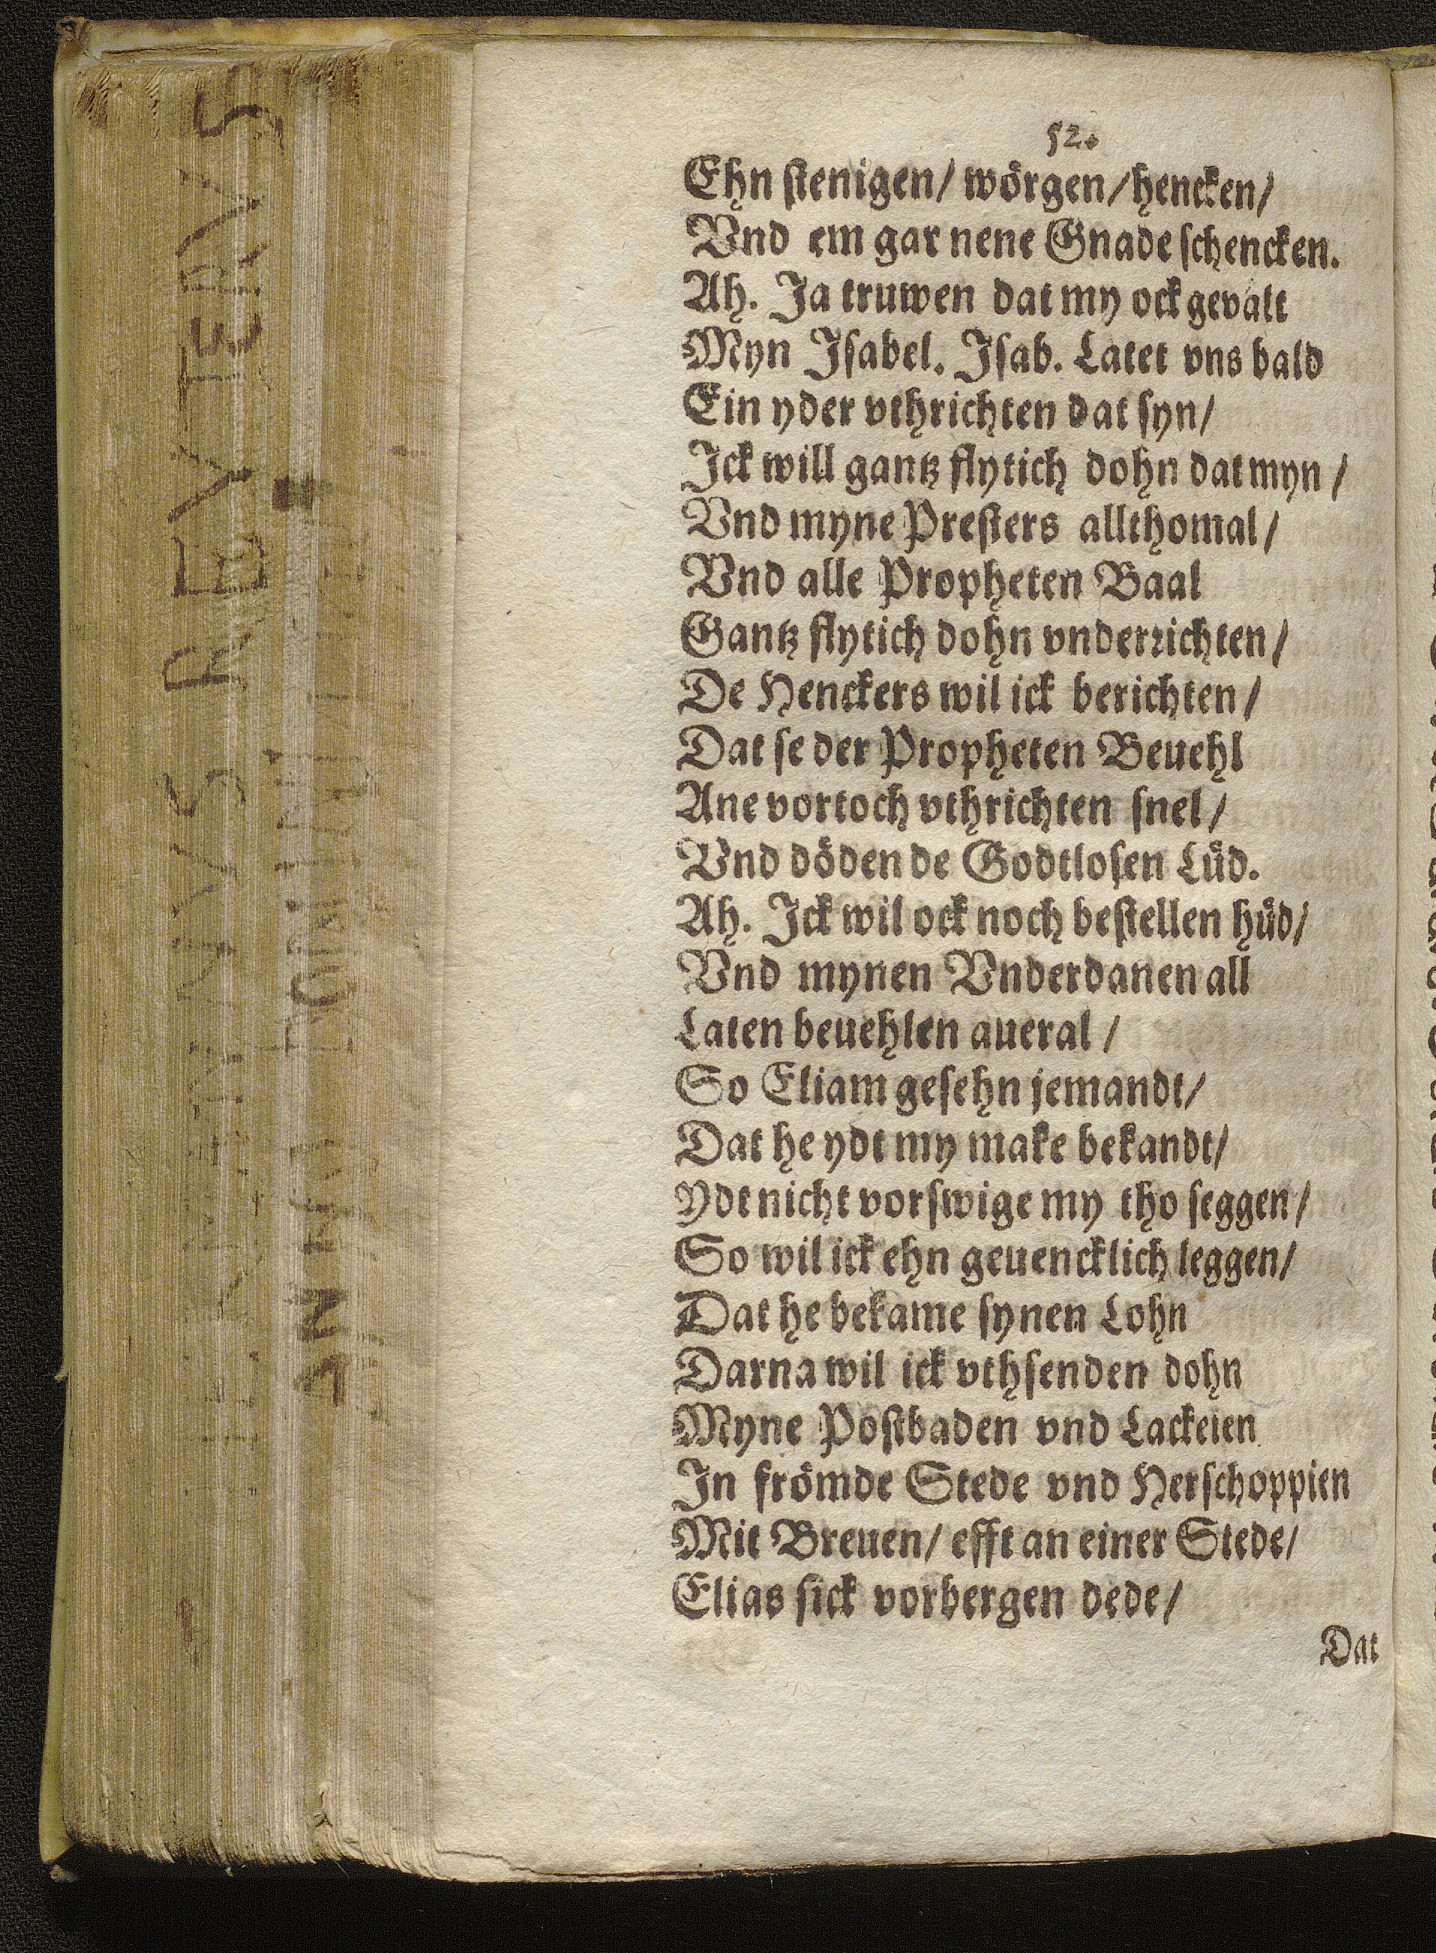 52.
Ehn stenigen/ wörgen/ hencken/
Vnd em gar nene Gnade schencken.
Ah. Ja truwen dat my ock gevalt
Myn Isabel. Isab. Latet vns bald
Ein yder vthrichten dat syn/
Ick will gantz flytich dohn dat myn/
Vnd myne Presters allthomal/
Vnd alle Propheten Baal
Gantz flytich dohn vnderrichten/
De Henckers wil ick berichten/
Dat se der Propheten Beuehl
Ane vortoch vthrichten snel/
Vnd döden de Godtlosen Lüd.
Ah. Ick wil ock noch bestellen hüd/
Vnd mynen Vnderdanen all
Laten beuehlen aueral/
So Eliam gesehn jemandt/
Dat he ydt my make bekandt/
Ydt nicht vorswige my tho seggen/
So wil ick ehn geuencklich leggen/
Dat he bekame synen Lohn
Darna wil ick vthsenden dohn
Myne Postbaden vnd Lackeien
In frömde Stede vnd Herschoppien
Mit Breuen/ efft an einer Stede/
Elias sick vorbergen dede/
Dat